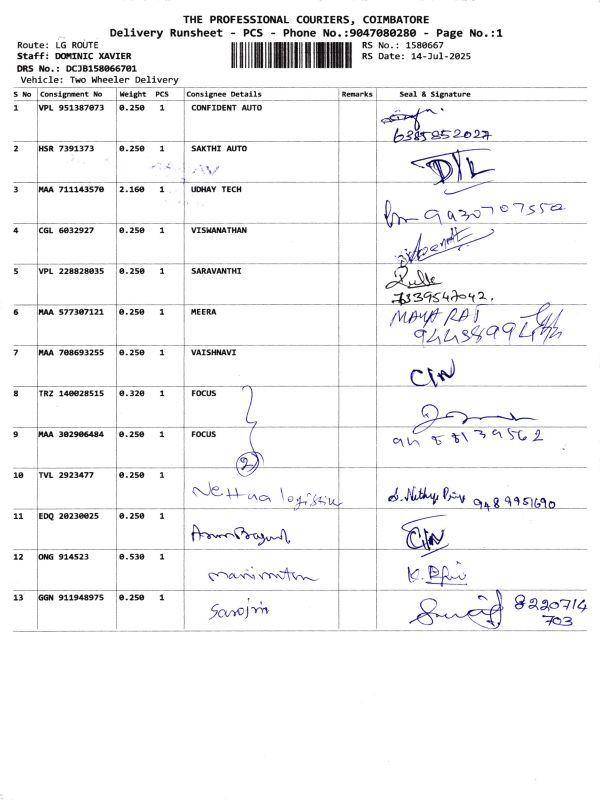 THE PROFESSIONAL COURIERS, COIMBATORE
Delivery Runsheet - PCS - Phone No.:9047080280 - Page No.:1
Route: LG ROUTE RS No.: 1580667
Staff: DOMINIC XAVIER RS Date: 14-Jul-2025
DRS No.: DCJB158066701
Vehicle: Two Wheeler Delivery
S No Consignment No Weight PCS Consignee Details Remarks Seal & Signature
1 VPL 951387073 0.250 1 CONFIDENT AUTO
6385852027
2 HSR 7391373 0.250 1 SAKTHI AUTO
3 MAA 711143570 2.160 1 UDHAY TECH
9930707550
4 CGL 6032927 0.250 1 VISWANATHAN
5 VPL 228828035 0.250 1 SARAVANTHI
7339547042.
6 MAA 577307121 0.250 1 MEERA MAYA RAJ
7 MAA 708693255 0.250 1 VAISHNAVI
8 TRZ 140028515 0.320 1 FOCUS
9 MAA 302906484 0.250 1 FOCUS
2
10 TVL 2923477 0.250 1 9489951690
11 EDQ 20230025 0.250 1
12 ONG 914523 0.530 1
13 GGN 911948975 0.250 1 Sarojini 8220714
703